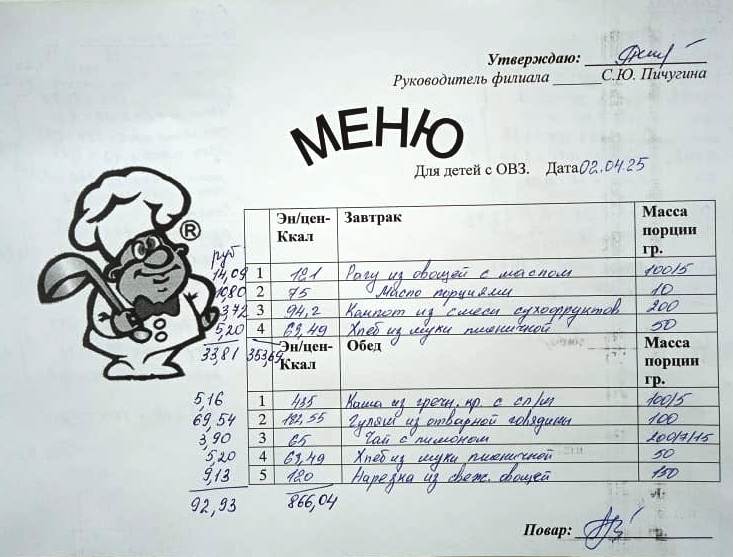 Утверждаю:
Руководитель филиала ______ С.Ю. Пичугина
МЕНЮ
Для детей с ОВЗ. Дата 02.04.25
®
руб
Эн/цен-Ккал Завтрак Масса порции гр.
14,09 1 121 Рагу из овощей с маслом 100/5
10,80 2 75 Масло порциями 10
3,72 3 94,2 Компот из смеси сухофруктов 200
5,20 4 63,49 Хлеб из муки пшеничной 50
33,81 353,69
Эн/цен-Ккал Обед Масса порции гр.
5,16 1 435 Каша из гречн. кр. с сл/м 100/5
69,54 2 182,55 Гуляш из отварной говядины 100
3,90 3 65 Чай с лимоном 200/7/15
5,20 4 63,49 Хлеб из муки пшеничной 50
9,13 5 120 Нарезка из свеж. овощей 150
92,93 866,04
Повар: